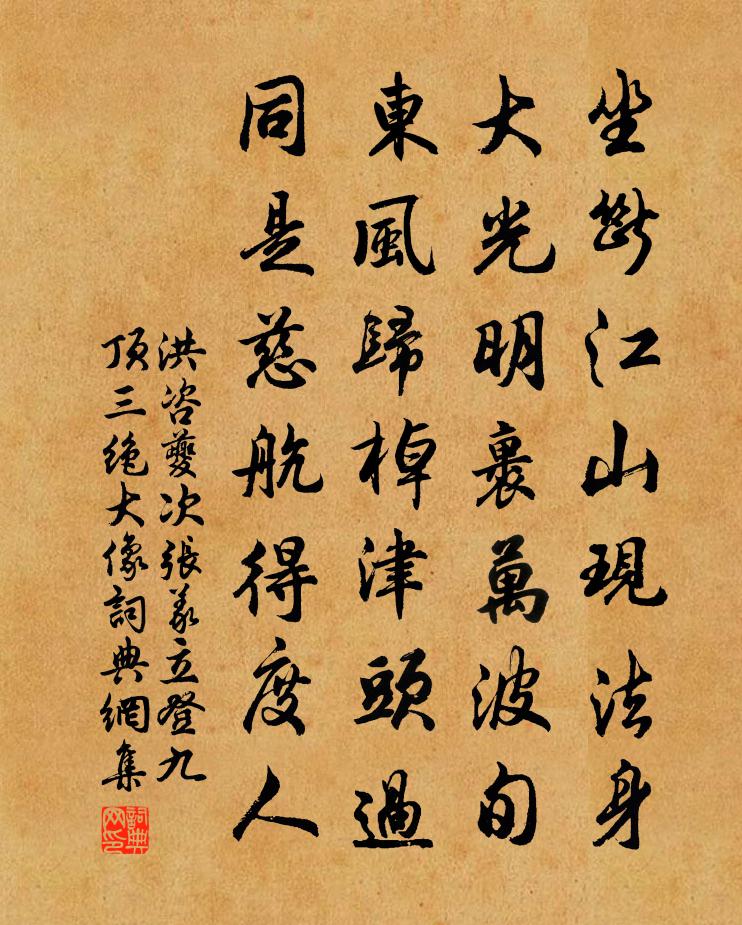 坐斷江山現法身
大光明裹萬波旬
東風歸棹津頭過
同是慈航得度人
洪咨夔次張義立登九
頂三絕大像詞典網集
詞典网印